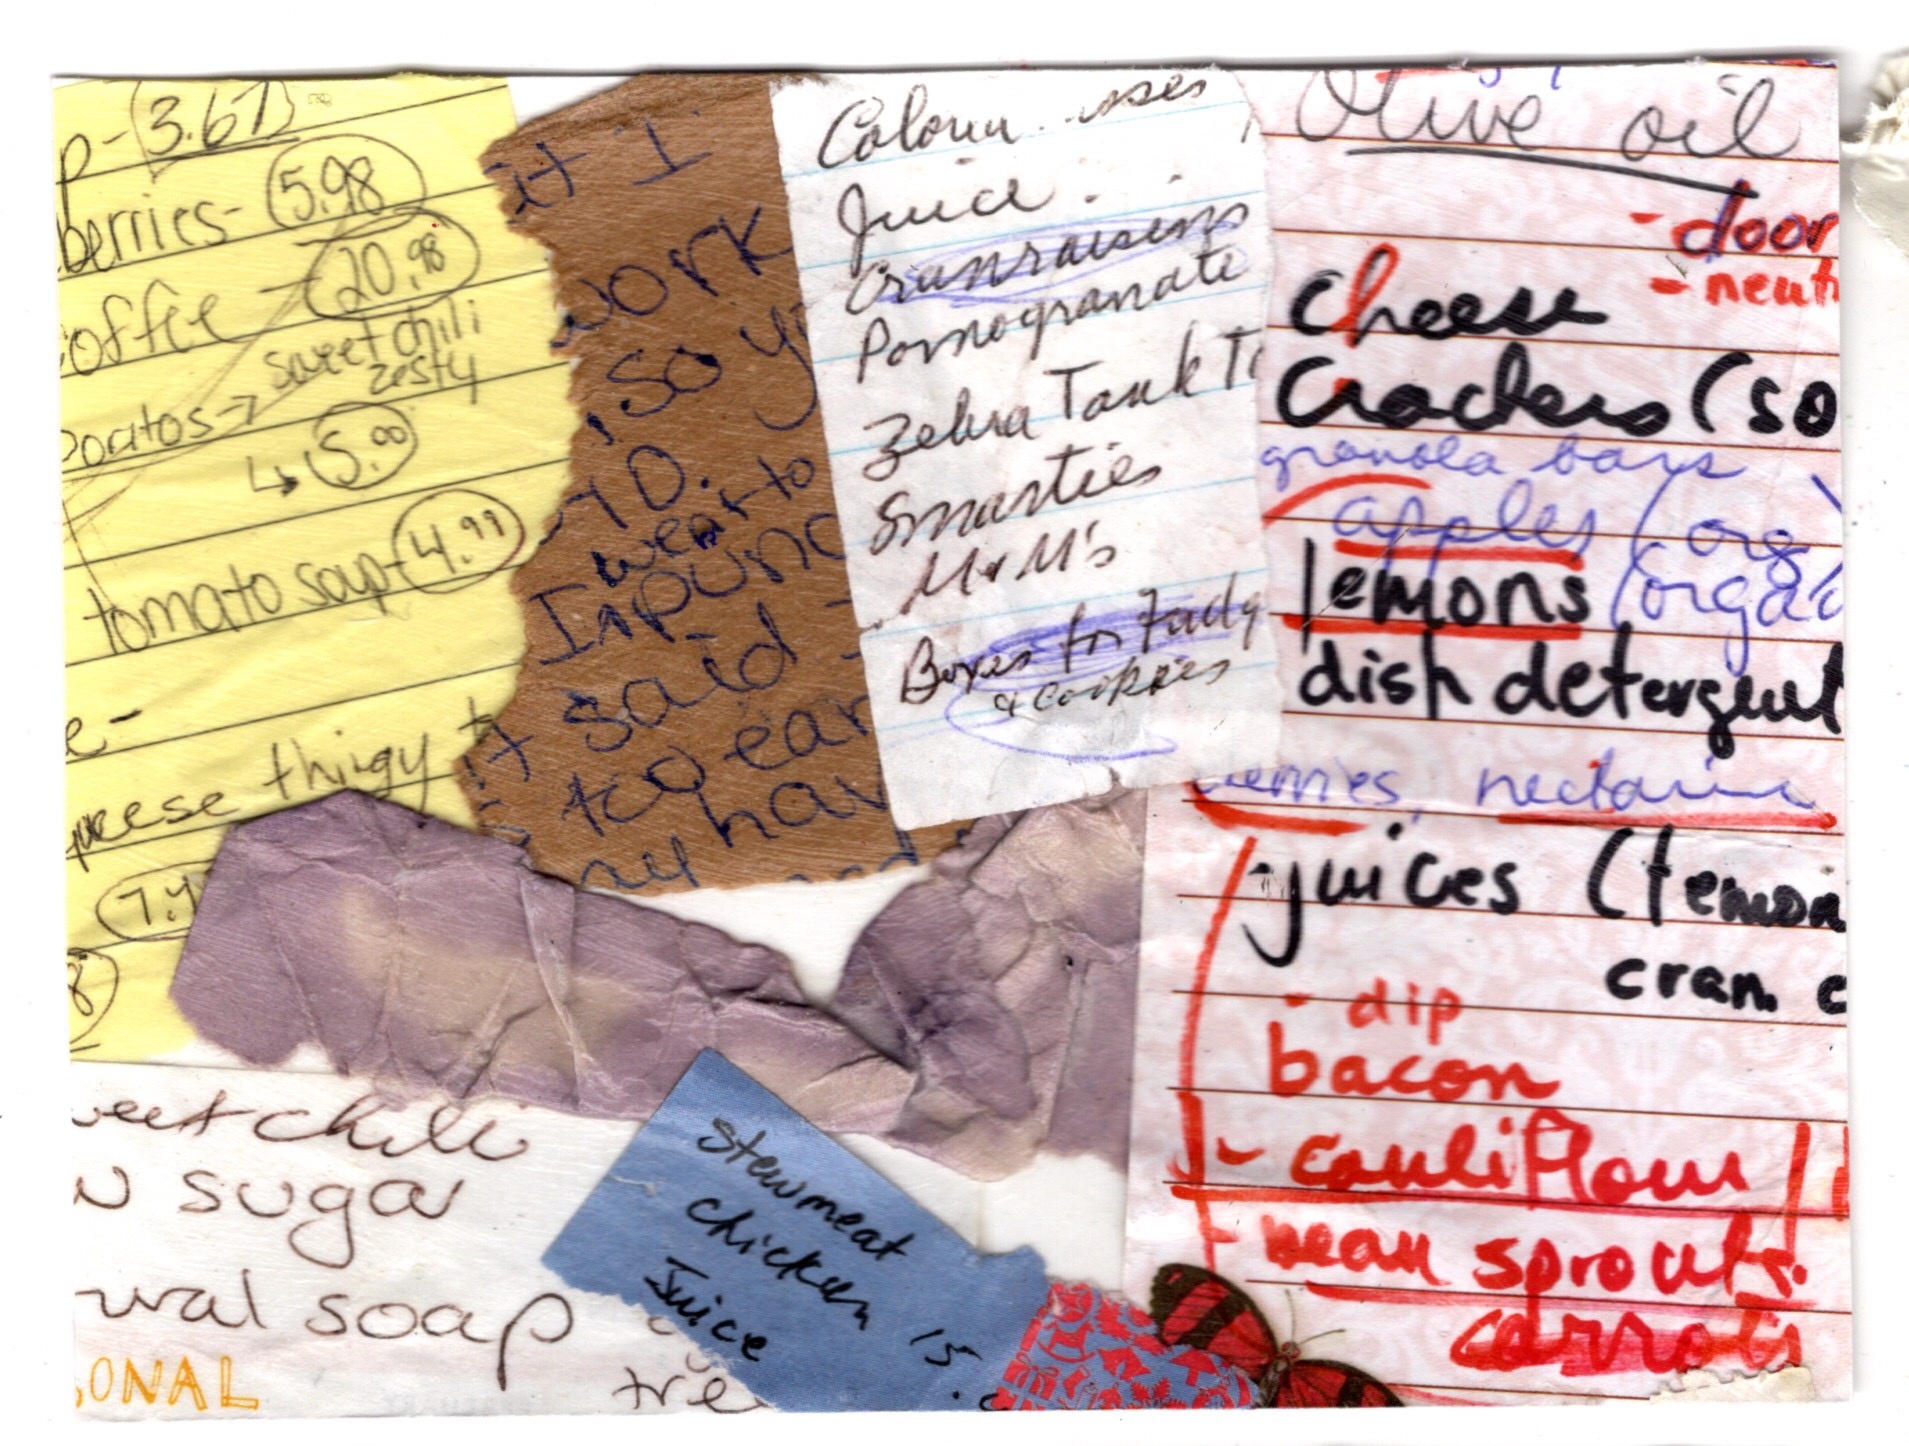 p- 3.67
berries- 5.98
offee - 20.98
sweet chili
zesty
Doritos->
↳ 5.00
tomato soup- 4.99
e-
cheese thigy
7.4
8
it I
work
, so y
40.
I wear to
inpunc
said I
it too ear
ay hav
Colour sses
Juice.
Cranraisins
Pomogranate
Zebra Tank T
Smarties
M&M's
Boxes for Fudg
& cookies
Olive oil
- door
- neut
cheese
Crackers (so
granola bars
apples (org
lemons (orga
dish detergent
berries, nectarin
juices (lemon
cran c
- dip
bacon
- cauliflour
- bean sprouts.
carrots
weet chili
w sugar
soap
tre
ONAL
stewmeat
chicken
Juice 15